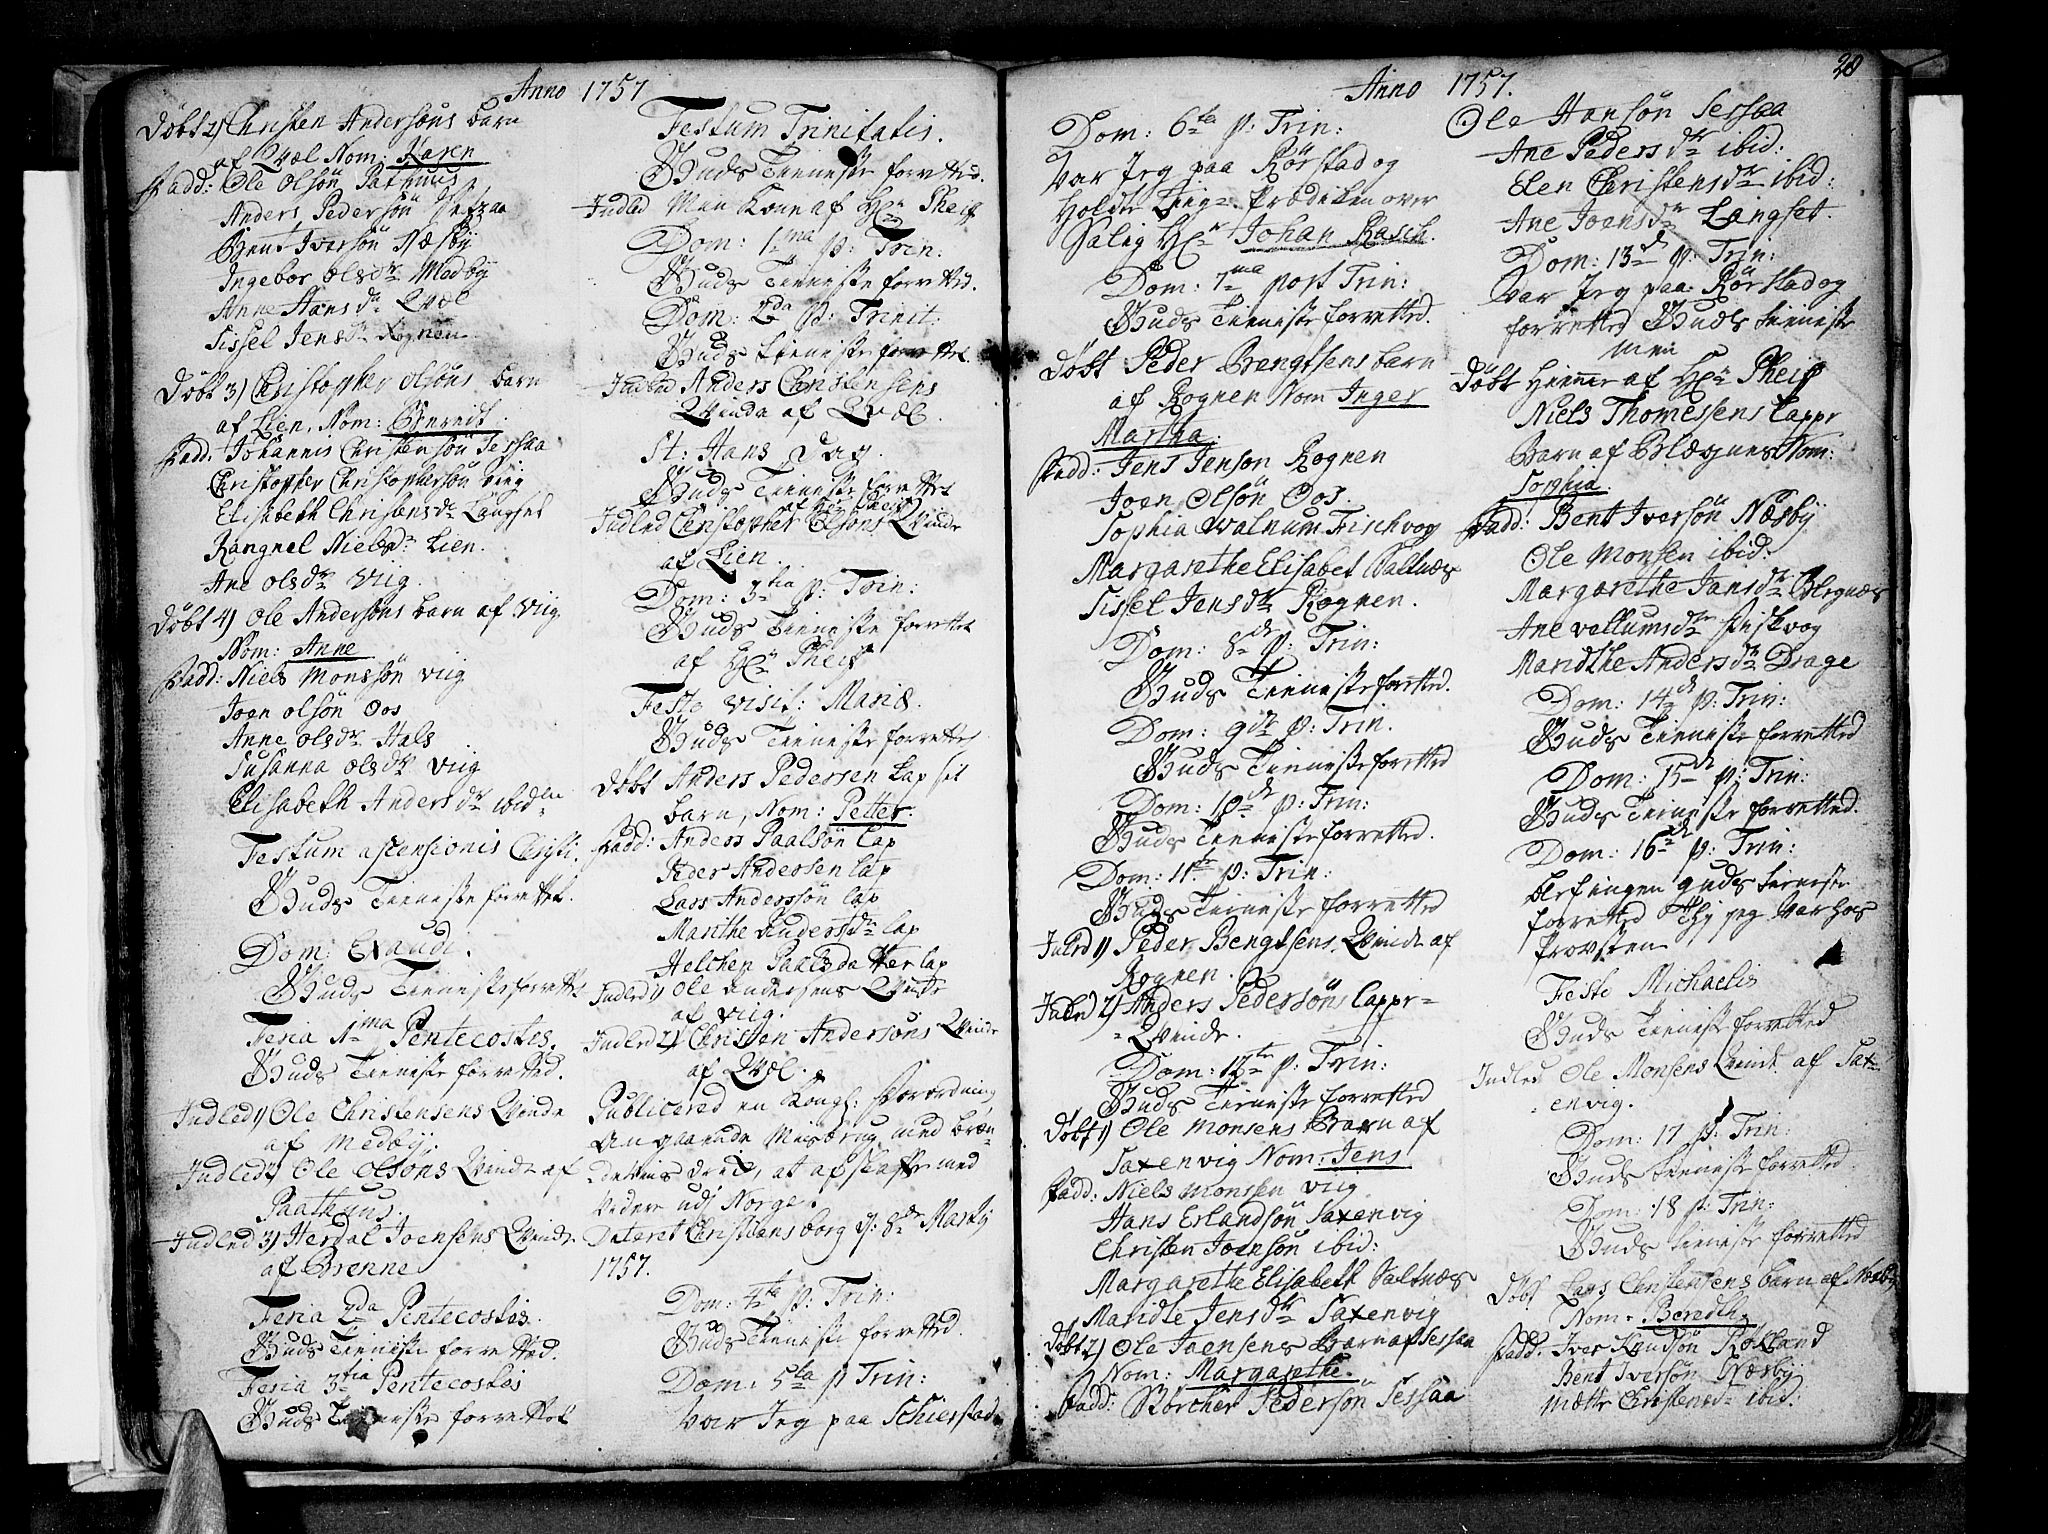 Anno 1757
Døbt 2) Christen Andersøns barn
af Qvæl Nom: Karen
Fadd: Ole Olsøn Pathuus
Anders Pedersøn
Bent Iversøn Næsby
Ingebor Olsdr Medby
Anne Hansdr Qvæl
Sissel Jensdr Rognen
Døbt 3) Christopher Olsøns barn
af Lien, Nom: Berendt
Fadd: Johannis Christensøn Sessaa
Christopher Christophersøn Viig
Elisabeth Christensdr Langset
Rangnel Nielsdr Lien.
Ane Olsdr Viig.
Døbt 4) Ole Andersøns barn af Viig
Nom: Anne
Fadd: Niels Monssøn Viig
Joen Olsøn Oos
Anne Olsdr Hals
Susanna Olsdr Viig
Elisabeth Andersdr ibidem
Festum ascensionis Christi.
Guds Tienneste forrettet.
Dom: Exaudi.
Guds Tienneste forrettet
Feria 1ma Pentecostes.
Guds Tienneste forretted.
Indled 1) Ole Christensens Qvinde
af Medby.
Indled 2) Ole Olsøns Qvinde af
Paathuus.
Indled 3) Herdal Joensens Qvinde
af Brenne
Feria 2da Pentecostes.
Guds Tienneste forretted.
Feria 3tia Pentecostes
Guds Tienneste forrettet
Festum Trinitatis.
Guds Tienneste forretted.
Indled Man Kone af Hr. Pheif
Dom: 1ma p: Trin:
Guds Tienneste forretted.
Dom: 2da p: Trinit:
Guds Tienneste forrettet
Indled Anders Christensens
Qvinde af Qvæl.
St: Hans Dag.
Guds Tienneste forrettet
af Hr. Pheif
Indled Christopher Olsøns Qvinde
af Lien.
Dom: 3tia p: Trin:
Guds Tienneste forrettet
af Hr. Pheif
Festo Visit: Mariæ.
Guds Tienneste forrettet
Døbt Anders Pedersen Lap sit
barn, Nom: Petter.
Fadd: Anders Paalsøn Lap
Peder Andersen Lap
Lars Anderssøn Lap
Marithe Andersdr Lap
Helchen Paalsdatter Lap
Indled 1) Ole Andersens Qvinde
af Viig.
Indled 2) Christen Andersøns Qvinde
af Qvæl.
Publicered en Kongl: Forordning
Angaaende Misbrug med Bræn-
devins drik, at afskaffe med
videre udj Norge.
Dateret Christiansborg d: 8de Martij
1757.
Dom: 4ta p: Trin:
Guds Tienneste forretted.
Dom: 5ta p Trin:
Var Jeg paa Schierstad
Anno 1757.
20
Dom: 6ta p: Trin:
Var Jeg paa Rörstad og
holdte Liig-Prædiken over
Salig Hr Johan Rasch.
Dom: 7ma post Trin:
Guds Tienneste forretted.
Døbt Peder Bengtsens barn
af Rognen Nom Inger
Martha.
Fadd: Jens Jenson Rognen
Joen Olsøn Oos.
Sophia Walnum Fischvog
Margarethe Elisabet Saltnæs
Sissel Jensdr Rognen.
Dom: 8de p: Trin:
Guds Tienneste forretted.
Dom: 9de p: Trin.
Guds Tienneste forretted
Dom: 10de p: Trin:
Guds Tienneste forretted.
Dom: 11te p: Trin:
Guds Tienneste forretted
Inled 1) Peder Bengtsens Qvinde af
Rognen.
Inled 2) Anders Pedersøns Lappe-
-Qvinde.
Dom: 12te p: Trin:
Guds Tienneste forretted
Døbt 1) Ole Monsens Barn af
Saxenvig Nom: Jens
Fadd: Niels Monssen Viig
Hans Erlandsøn Saxenvig
Christen Joensøn ibid:
Margaretha Elisabeth Saltnæs
Maridle Jensdr Saxenvig
Døbt 2) Ole Jaensens Barn af Sessaa
Nom: Margarethe.
Fadd: Børcher Pedersøn Sessaa
Ole Hansøn Sessaa
Ane Pedersdr ibid:
Elen Christensdr ibid:
Ane Joensdr Langset.
Dom: 13de p: Trin:
Var Jeg paa Rörstad og
forretted Guds Tienneste
men
Døbt hienne af Hr. Pheif
Niels Thomessens Lappe
Barn af Blægnes Nom:
Sophia.
Fadd: Bent Iversøn Næsby
Ole Monsen ibid:
Margarethe Jansdr Blegnæs
Ane Vellumsdr Fiskvog
Maridthe Andersdr Drage
Dom: 14de p: Trin:
Guds Tienneste forretted
Dom: 15de p: Trin:
Guds Tienneste forretted.
Dom: 16de p: Trin:
bref ingen guds tieneste
forretted Thj jeg var hos
Provsten
Festo Michaelis
Guds Tienneste forretted
Indled Ole Monsens Qvinde af Sax-
-envig.
Dom: 17 p: Trin:
Guds Tienneste forretted
Dom: 18 p: Trin:
Guds Tienneste forretted
Døbt Lars Christensens barn af Næsby
Nom: Beredth
Fadd: Iver Knudsøn Rokland
Bent Iversøn Næsby
Mætte Christensdr ibid: